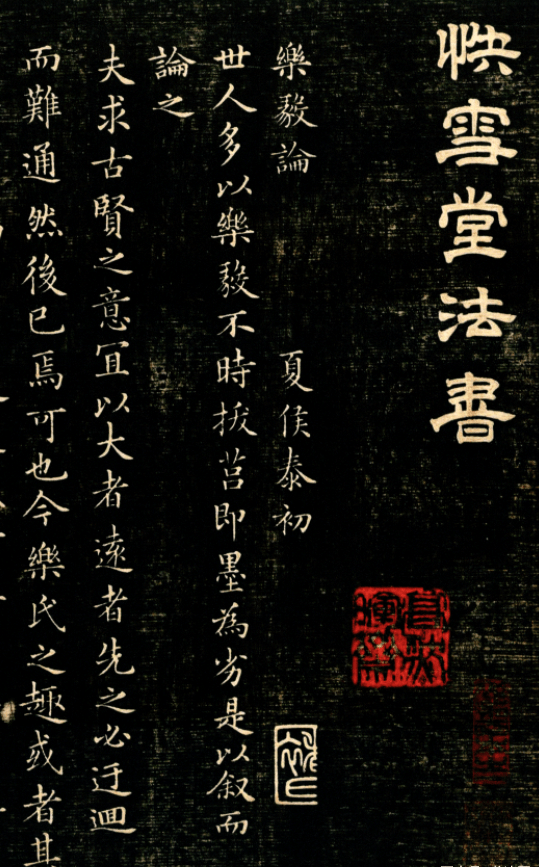 快雪堂法書
樂毅論 夏侯泰初
世人多以樂毅不時拔莒即墨為劣是以叙而
論之
夫求古賢之意冝以大者遠者先之必迂迴
而難通然後已焉可也今樂氏之趣或者其